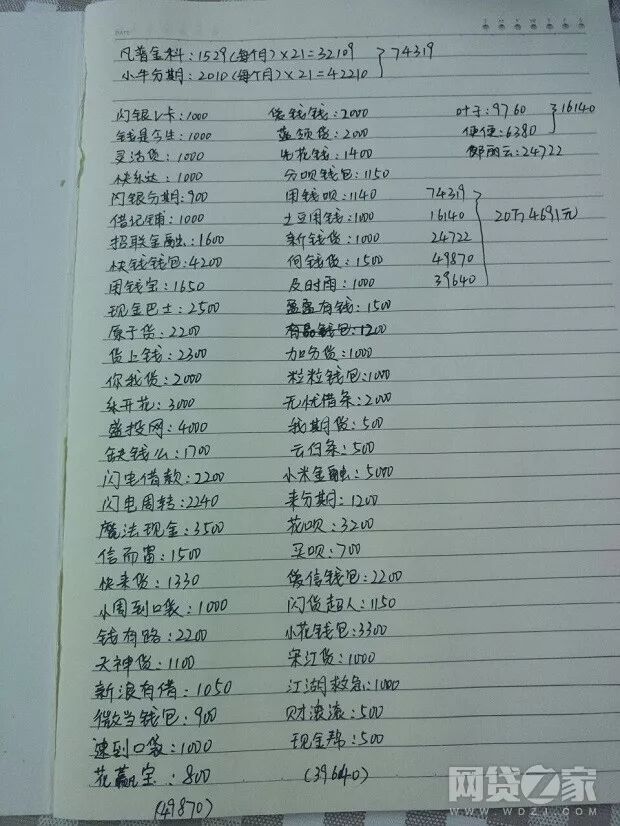 DATE
凡普金科：1529(每个月)×21=32109
小牛分期：2010(每个月)×21=42210
74319
闪银V卡：1000
钱是今生：1000
灵活贷：1000
快乐达：1000
闪银分期：900
借记铺：1000
招联金融：1600
快钱钱包：4200
用钱宝：1650
现金巴士：2500
原子贷：2200
贷上钱：2300
你我贷：2000
朵开花：3000
盛投网：4000
缺钱么：1700
闪电借款：2200
闪电周转：2240
魔法现金：3500
信而富：1500
快来贷：1330
小周到口袋：1000
钱有路：2200
天神贷：1100
新浪有借：1050
微当钱包：900
速到口袋：1000
花赢宝：800
(49870)
贷钱钱：2000
蓝领贷：2000
先花钱：1400
分呗钱包：1150
用钱呗：1140
土豆用钱：1000
新钱贷：1000
何钱贷：1500
及时雨：1000
盈盈有钱：1500
钱包：1200
加分贷：1000
粒粒钱包：1000
无忧借条：2000
我期贷：500
云白条：500
小米金融：5000
来分期：1200
花呗：3200
买呗：700
爱信钱包：2200
闪贷超人：1150
小花钱包：3300
宋江贷：1000
江湖救急：1000
财滚滚：500
现金帮：500
(39640)
叶子：9760
便便：6380
16140
邹丽云：24722
74319
16140
24722
49870
39640
20万4691元
网贷之家
WWW.WDZJ.COM